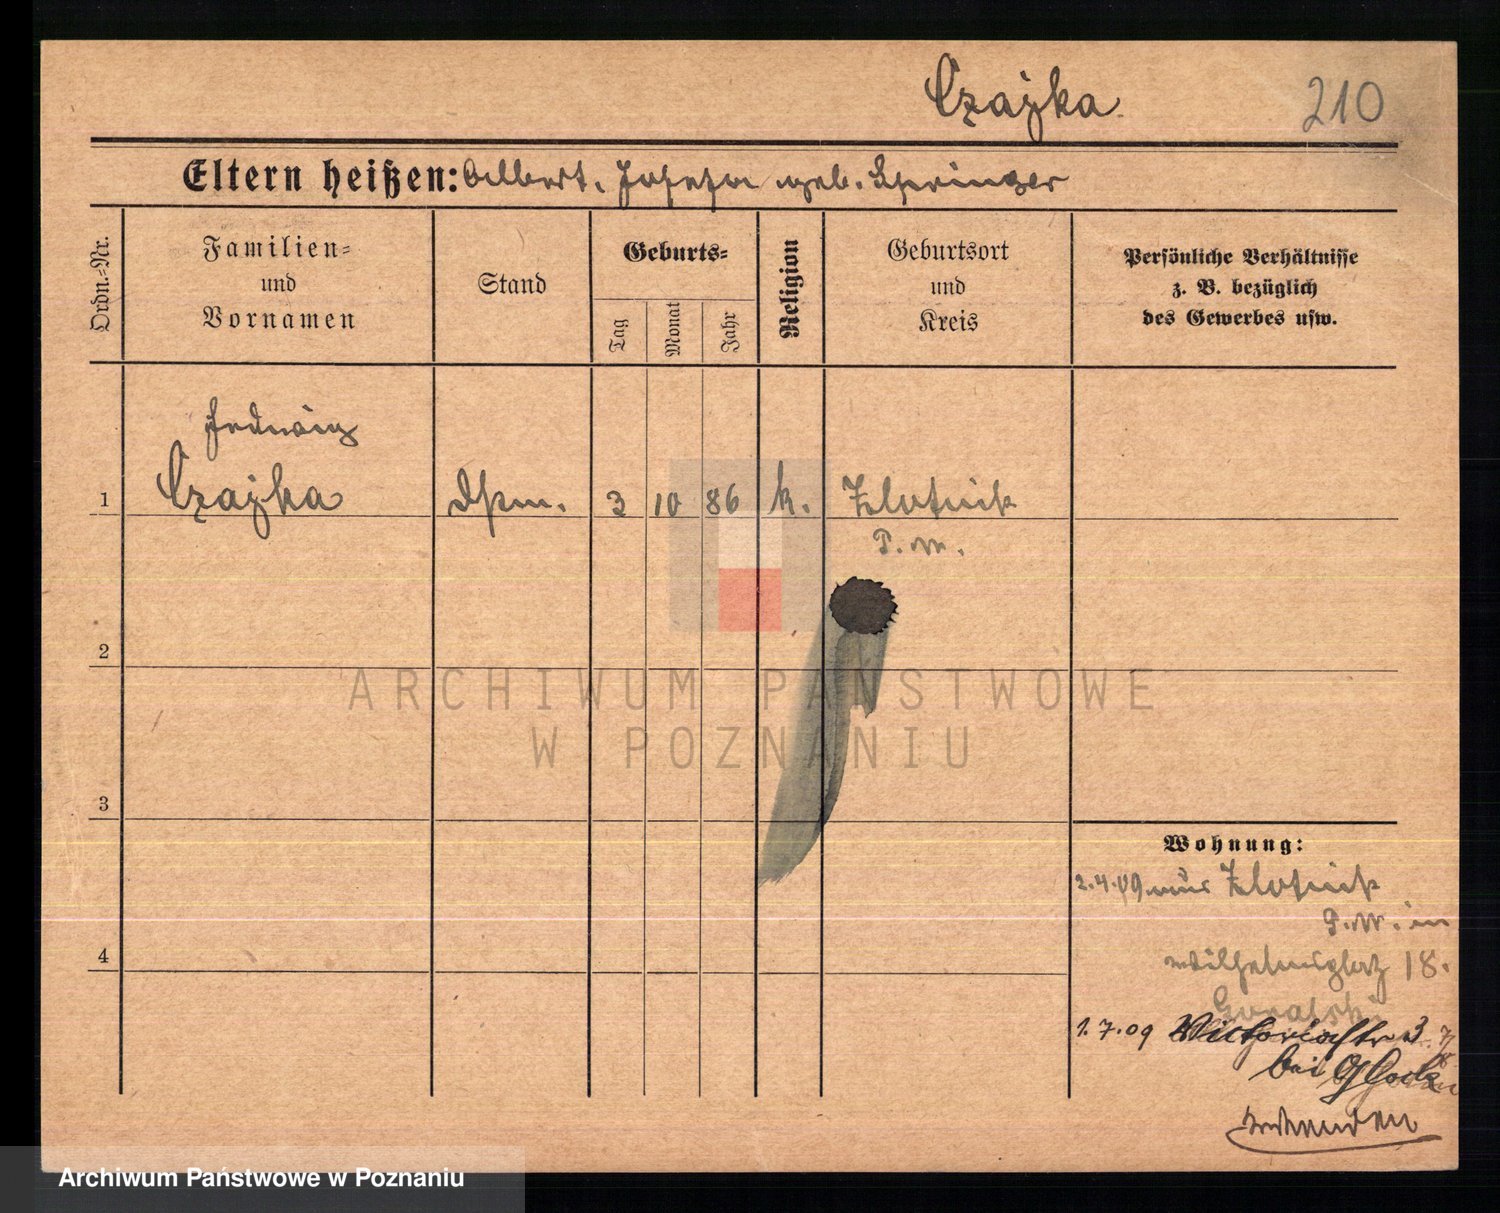 Czajka
210
Eltern heißen: Albert, Josefa geb. Springer
Ordn.=Nr.
Familien=
und
Vornamen
Stand
Geburts=
Tag
Monat
Jahr
Religion
Geburtsort
und
Kreis
Persönliche Verhältnisse
z. B. bezüglich
des Gewerbes usw.
Hedwig
1 Czajka 3 10 86 k. Zlotnik
P. W.
2
ARCHIWUM PAŃSTWOWE
W POZNANIU
3
Wohnung:
2.4.09 aus Zlotnik
P. W. in
4
Wilhelmsplatz 18.
Goralski
1.7.09 Victoriastr
bei
Archiwum Państwowe w Poznaniu